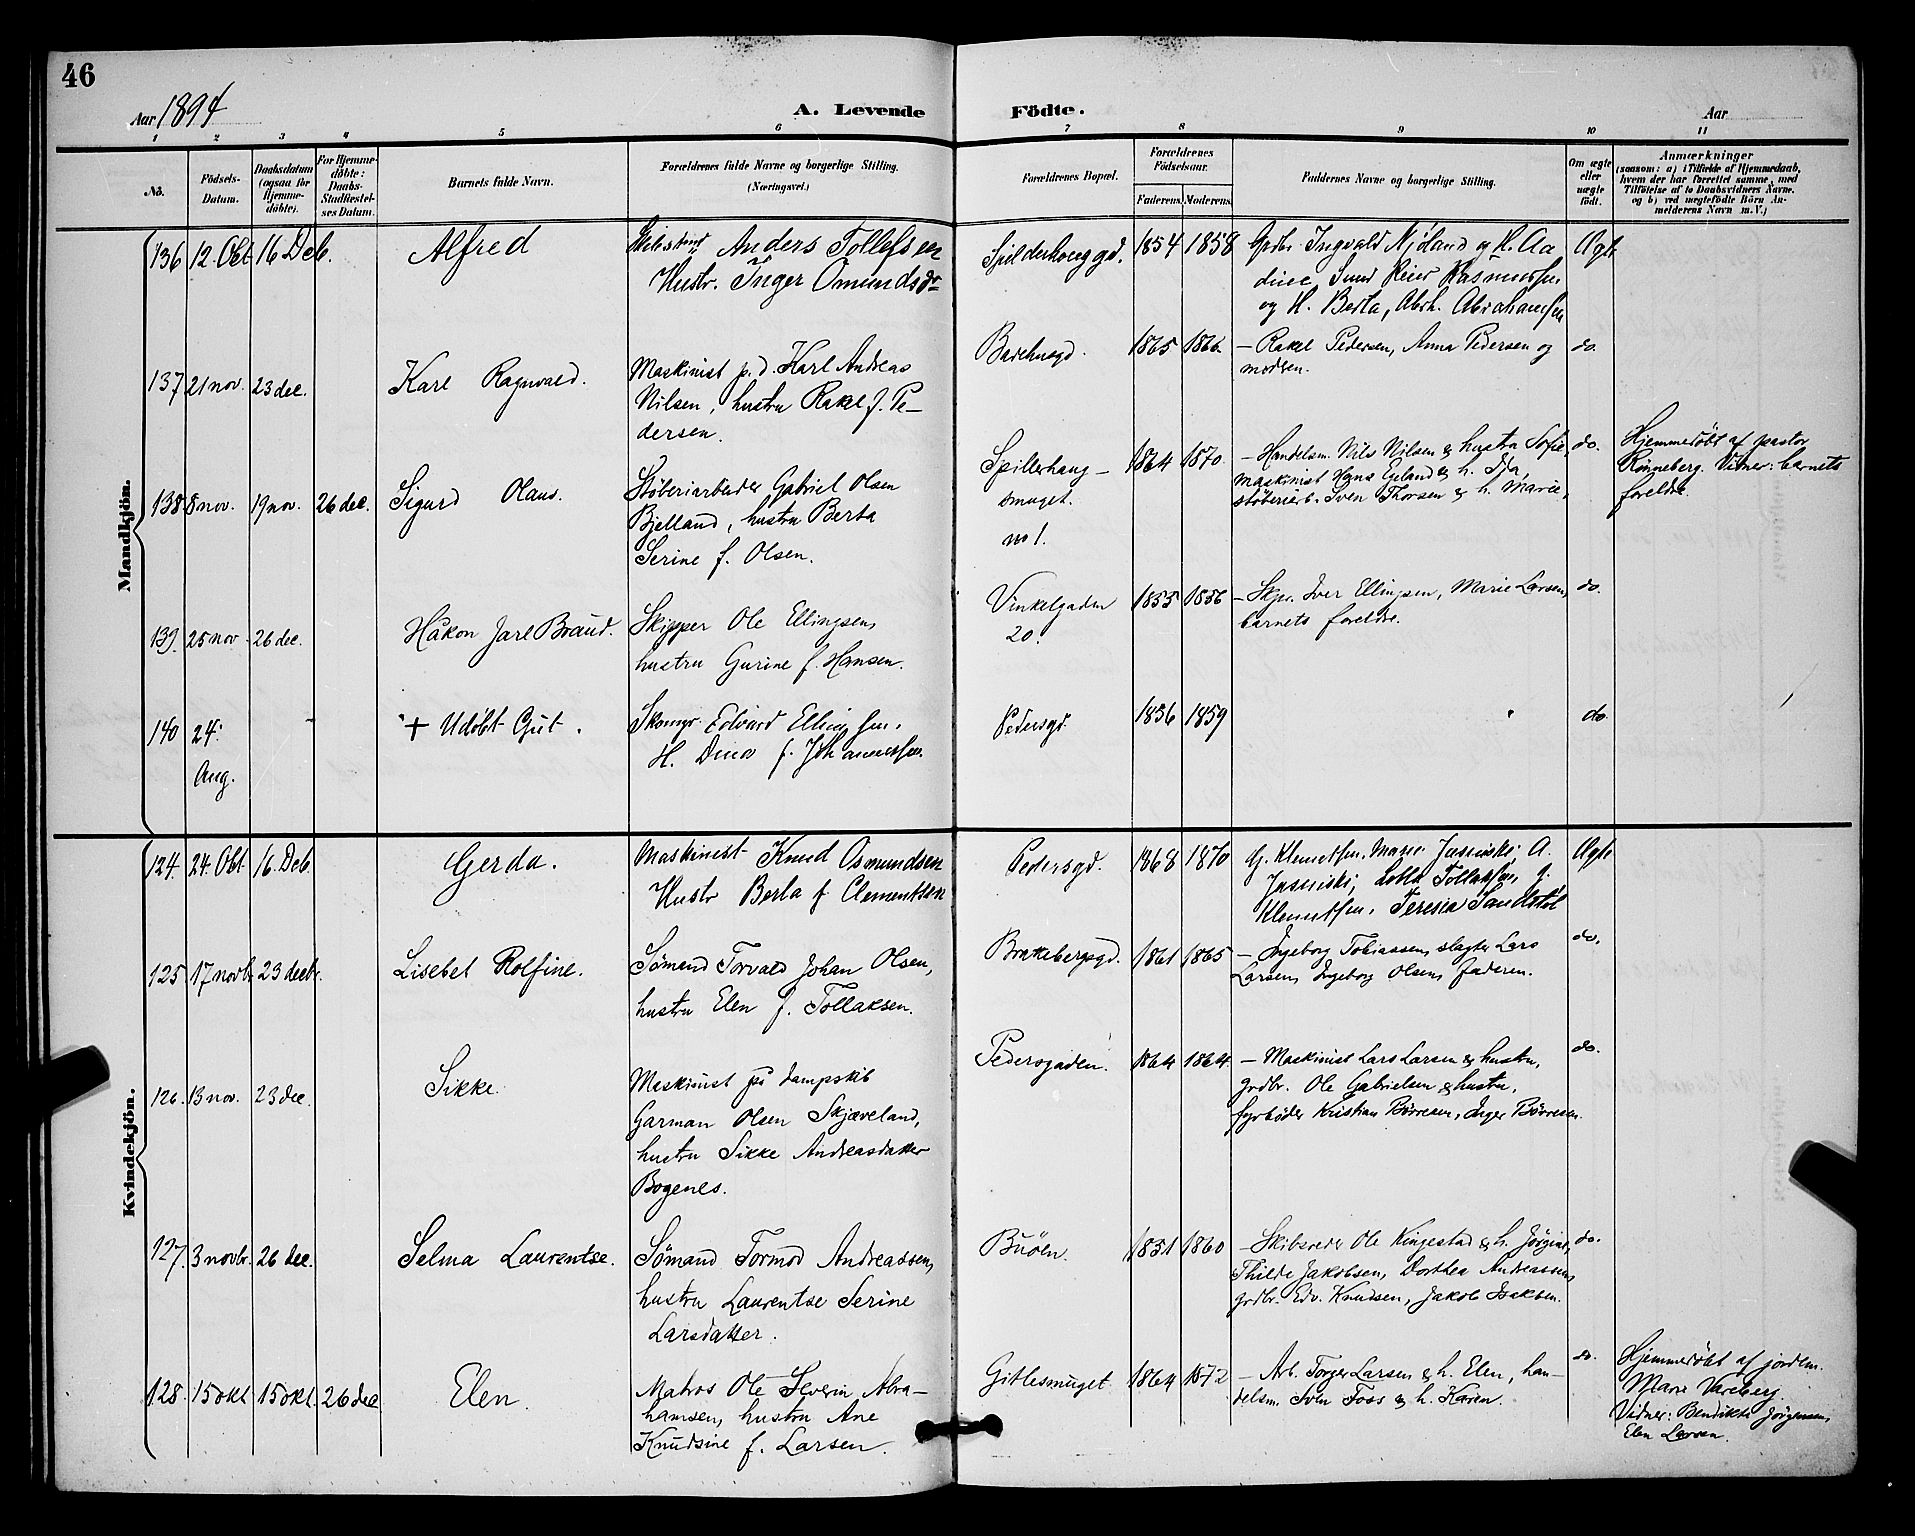 46
Aar 1894
A. Levende Födte.
Aar
1 2 3 4 5 6 7 8 9 10 11
No.
Födsels-Datum.
Daabsdatum (ogsaa for Hjemmedöbte).
For Hjemmedöbte: Daabs-Stadfæstelses Datum.
Barnets fulde Navn.
Forældrenes fulde Navne og borgerlige Stilling.
(Næringsvei.)
Forældrenes Bopæl.
Forældrenes Födselsaar.
Faderens. Moderens.
Faddernes Navne og borgerlige Stilling.
Om ægte eller uægte födt.
Anmærkninger
(saasom: a) i Tilfælde af Hjemmedaab, hvem der har forrettet samme, med Tilföielse af to Daabsvidners Navne. og b) ved uægtefödte Börn Anmelderens Navn m. V.)
Mandkjön.
136 12 Okt 16 Deb. Alfred
Anders Tollefsen
Hustr. Inger Omundsdr
Spilderhouggd. 1854 1858
Grdbr. Ingvald Njåland og H. Aa
dine, Rasmussen
og H. Berta, Abrh. Abrahamsen
Ægte
137 21 nov. 23 dec. Karl Ragnvald.
Maskinist p. d. Karl Andreas
Nilsen, hustru Rakel f. Pe-
dersen.
1865 1866
- Rakel Pedersen, Anna Pedersen og
modren.
do.
138 8 nov. 19 nov. 26 dec. Sigurd Olaus.
Støberiarbeider Gabriel Olsen
Bjelland, hustru Berta
Serine f. Olsen.
Spillerhaug-
smuget.
no 1.
1864 1870
- Handelsm. Nils Nilsen & hustru Sofie,
maskinist Hans Egeland & h. Ida,
støberiarb. Sven Thorsen & h. Marie,
do.
Hjemmedöbt af pastor
Rönneberg. Vidner: barnets
foreldre.
139. 25 nov. 26 dec. Håkon Jarl Braud.
Skipper Ole Ellingsen,
hustru Gurine f. Hansen.
Vinkelgaden
20.
1855 1856
- Skpr. Iver Ellingsen, Marie Larsen,
barnets foreldre.
do.
140 24. Aug. + Udöbt Gut.
Skomgr. Edvard Ellingsen.
H. f. Johannessen.
Pedersgd. 1856 1859
do.
Kvindekjön.
124. 24. Okt 16. Deb. Gerda.
Maskinist Knud Osmundsen
Hustr Berta f Clementsen
Pedersgd. 1868 1870
G. Klemetsen, Marie Jasinski, A.
Jasinski, Tollaksen, J.
Klemetsen, Teresia Sandstöl
Ægte
125. 17 novb. 23 decbr. Lisebet Rolfine.
Sömand Torvald Johan Olsen,
hustru Elen f. Tollaksen.
Brakebergsgd. 1861 1865
- Ingeborg Tobiassen, slagter Lars
Larsen, Ingeborg Olsen, faderen.
do.
126. 13 nov. 23 dec. Sikke.
Maskinist på dampskib
Garman Olsen Skjæveland,
hustru Sikke Andreasdatter
Bogenes.
Pedersgaden. 1864 1864.
- Maskinist Lars Larsen & hustru,
grdbr. Ole Gabrielsen & hustru,
fyrböder Kristian Börresen, Inger Börresen.
do.
127. 3 novbr. 26 dec. Selma Laurentse.
Sömand Tormod Andreassen,
hustru Laurentse Serine
Larsdatter.
Buöen. 1851 1860
- Skibsreder Ole Kingestad & h. Jörgine,
Thilde Jakobsen, Dorthea Andreassen,
grdbr. Edv. Knudsen, Jakob Isaksen.
do.
128. 15 okt 15 okt. 26 dec Elen.
Matros Ole Severin Abra-
hamsen, hustru Ane
Knudsine f. Larsen.
Gitlesmuget. 1864 1872
- Arb. Torger Larsen & h. Elen, han-
delsm. Sven Foss & h. Karen.
do.
Hjemmedöbt af jordm.
Marie Vareberg.
Vidner: Bendikte Jörgensen,
Elen Larsen.